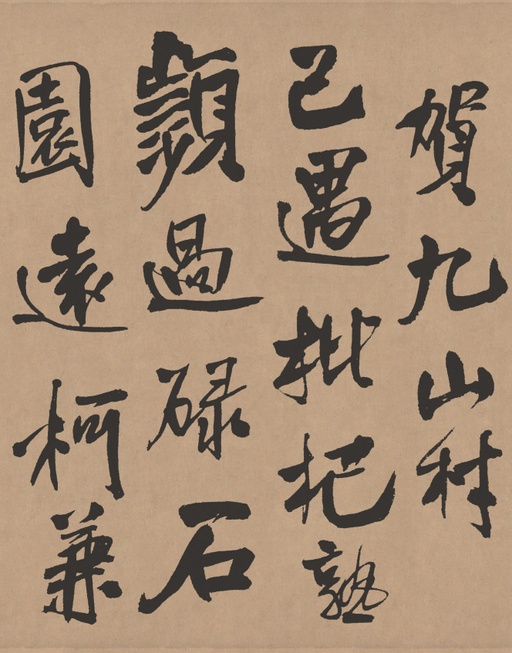 賀九山村
已遇枇杷熟
頻過碌石
園遠柯兼